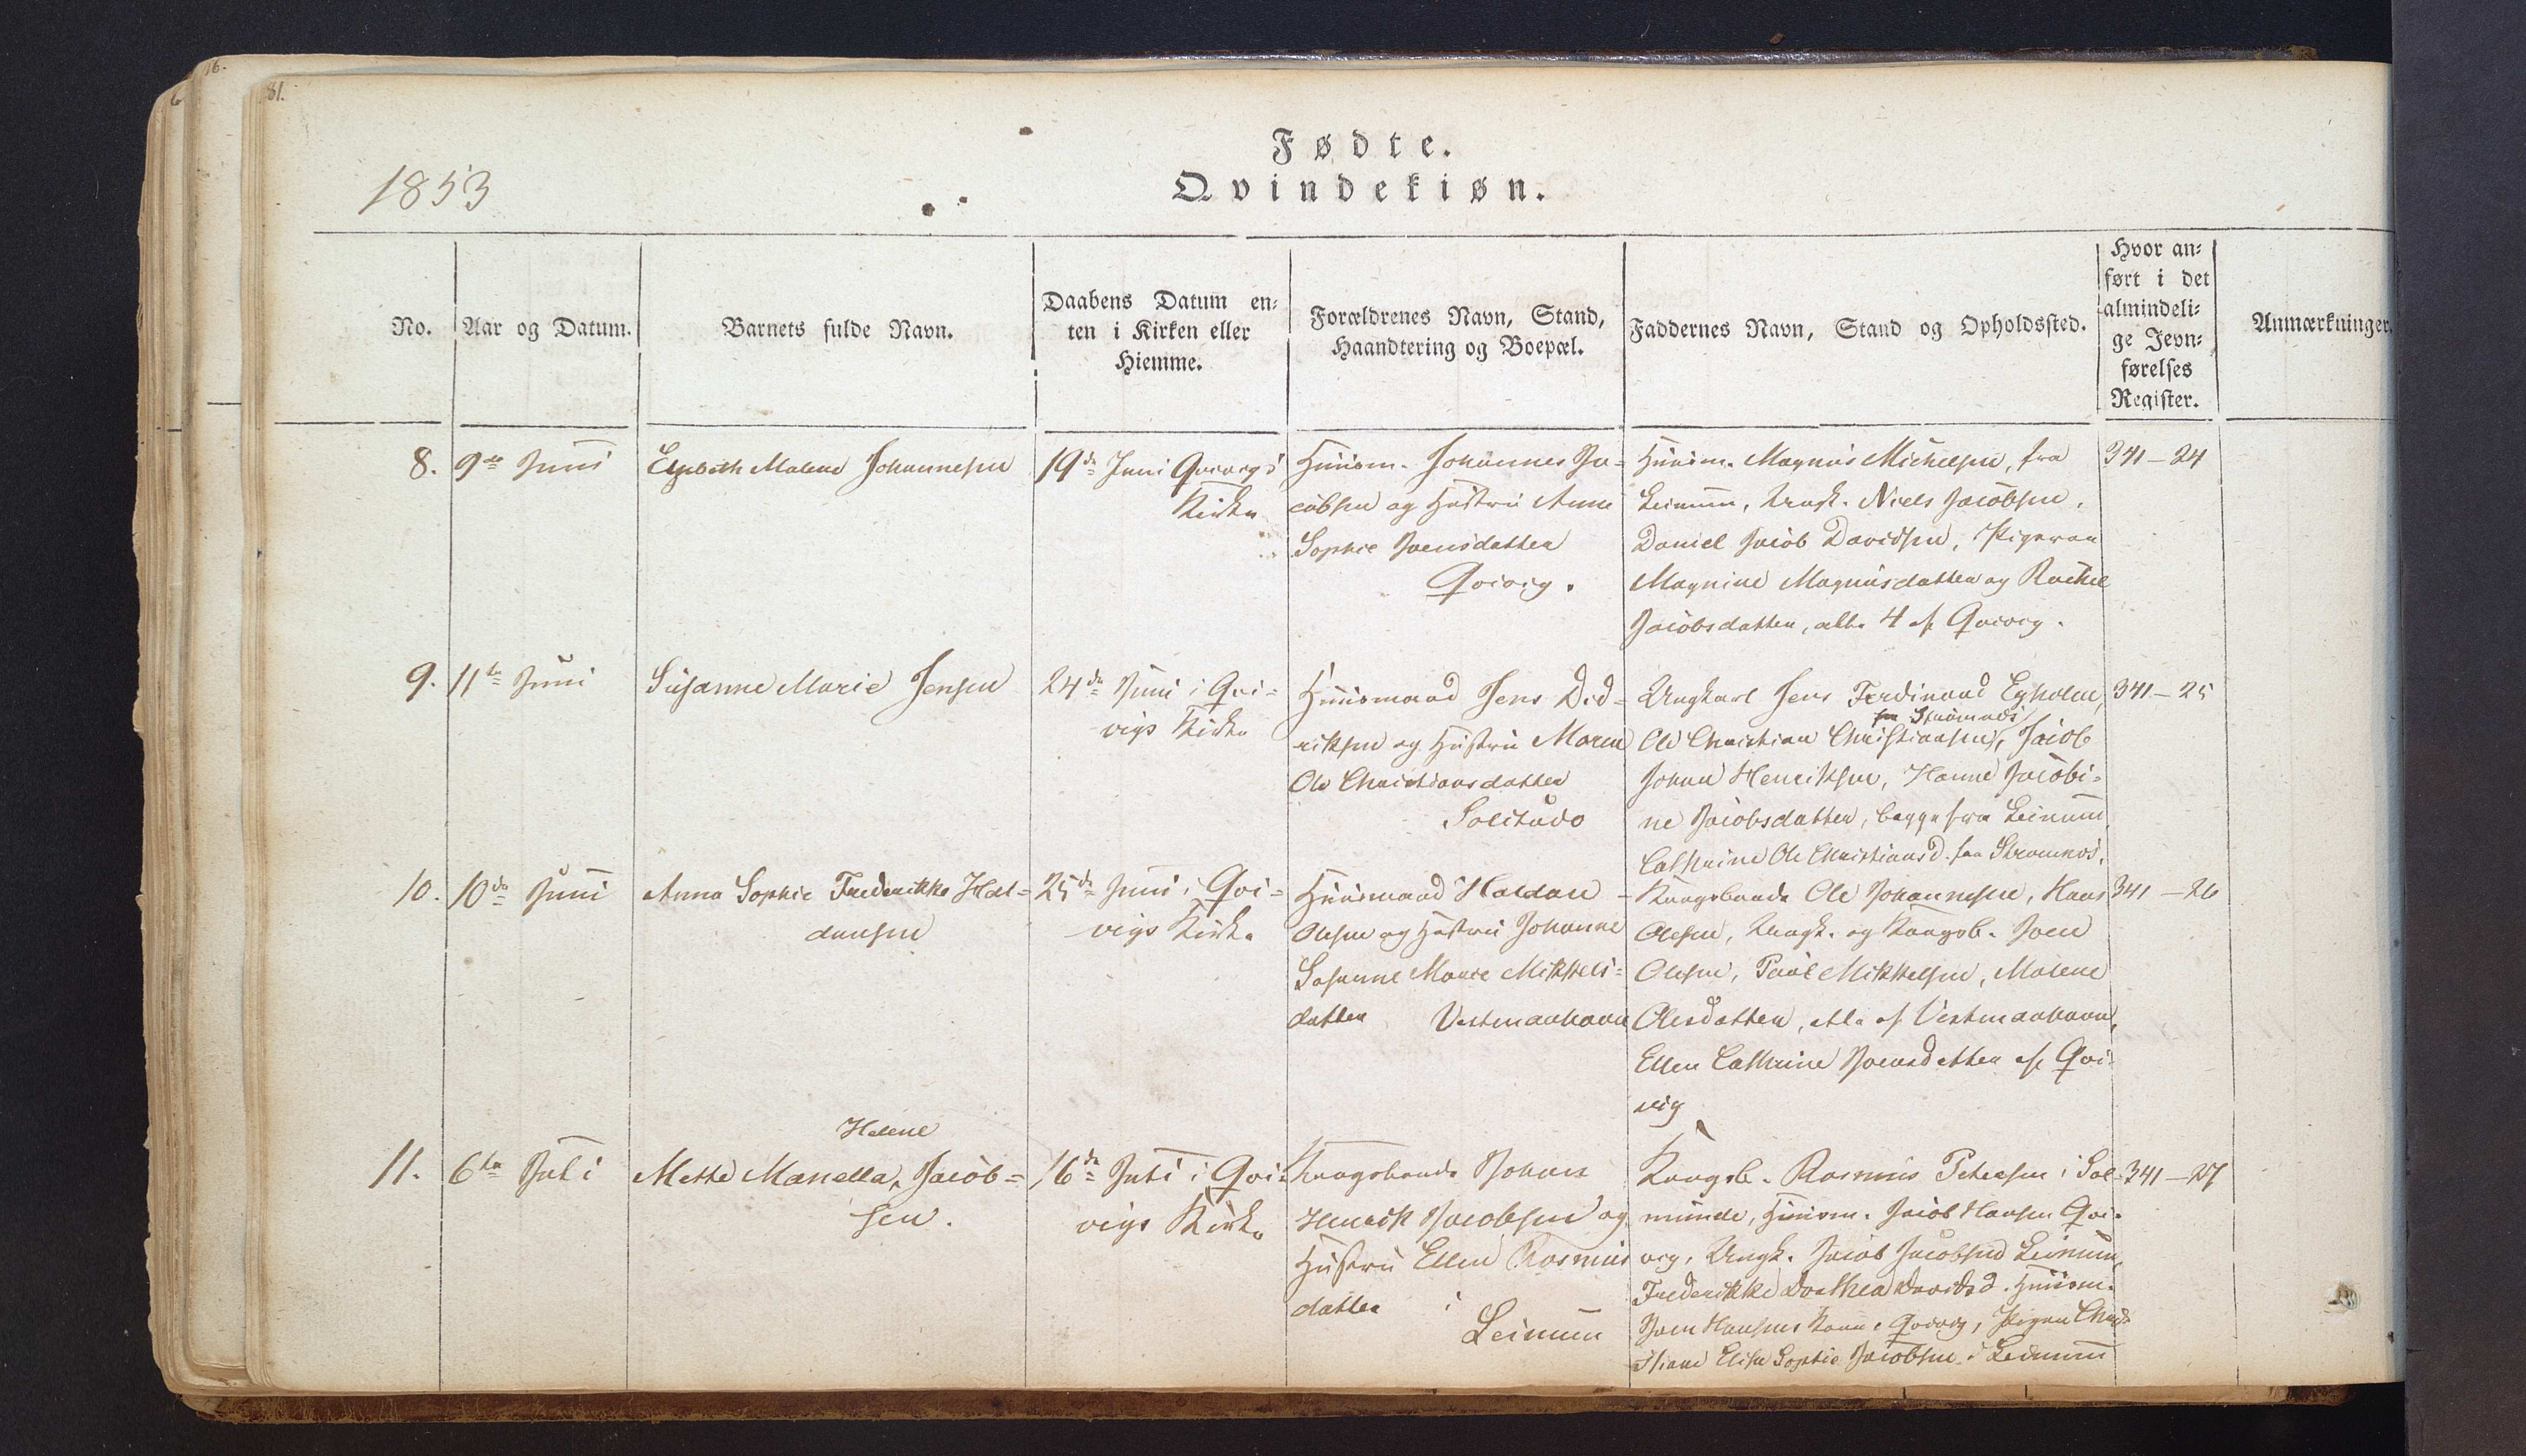 16.
81.
1853
Fødte.
Qvindekiøn.
No.
Aar og Datum.
Barnets fulde Navn.
Daabens Datum en-
ten i Kirken eller
Hiemme.
Forældrenes Navn, Stand,
Haandtering og Boepæl.
Faddernes Navn, Stand og Opholdssted.
Hvor an-
ført i det
almindeli-
ge Jevn-
førelses
Register.
Anmærkninger.
8.
9de Juni
Elsebeth Malene Johannesen
19de Juni Qvivigs
Kirke
Huusm. Johannes Ja-
cobsen og Hustru Anne
Sophie Joensdatter
Qvivig.
Huusm. Magnus Michelsen, fra
Leinum, Ungk. Niels Jacobsen,
Daniel Jacob Davidsen, Pigerne
Magnine Magnusdatter og Rachel
Jacobsdatter, alle 4 af Qvivig.
341-24
9.
11te Juni
Susanne Marie Jensen
24de Juni i Qvi-
vigs Kirke
Huusmand Jens Did-
riksen og Hustru Maren
Ole Christiansdatter
Solitudo
Ungkarl Jens Ferdinand Egholm,
fra Strømnæs
Ole Christian Christiansen, Jacob
Johan Henriksen, Hanne Jacobi-
ne Jacobsdatter, begge fra Leinum
Cathrine Ole Christiansd. fra Strømnæs.
341-25
10.
10de Juni
Anna Sophie Frederikke Hal-
dansen
25de Juni i Qvi-
vigs Kirke
Huusmand Haldan
Olesen og Hustru Johanne
Susanne Marie Mikkels-
datter Vestmanhavn
Kongsbonde Ole Johannesen, Hans
Olesen, Ungk. og Kongsb. Joen
Olesen, Paul Mikkelsen, Malene
Olesdatter, alle af Vestmanhavn,
Ellen Cathrine Joensdatter af Qvi-
vig
341-26
11.
6te Juli
Helene
Mette Manella, Jacob-
sen.
16de Juli i Qvi-
vigs Kirke
Kongsbonde Johan
Henrik Jacobsen og
Hustru Ellen Rasmus
datter i
Leinum
Kongsb. Rasmus Petersen i Sal-
munde, Huusm. Jacob Hansen Qvi-
vig, Ungk. Jacob Jacobsen Leinum,
Frederikke Dorthea Davidsd. Huusm.
Joen Hansens Kone, Qvivig, Pigen Chri-
stiane Elise Sophie Jacobsen i Leinum
341-27